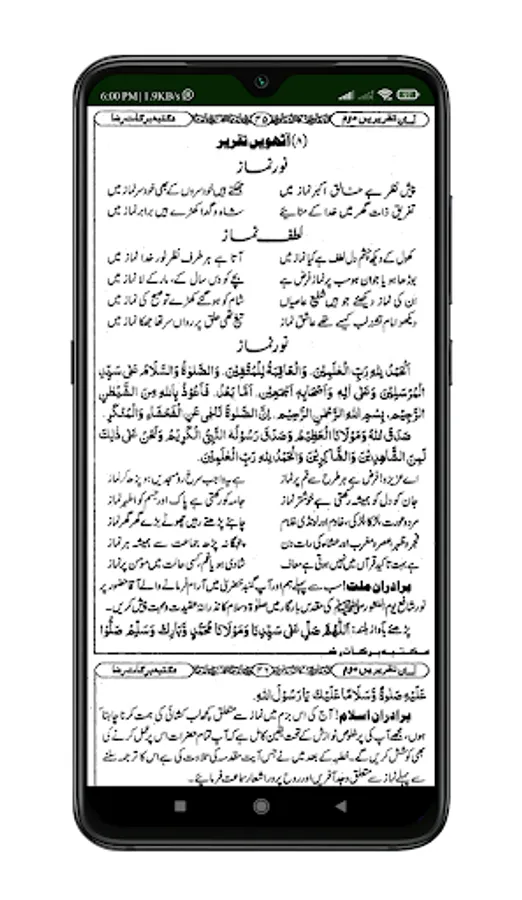 6:00 PM | 1.9KB/s
مکتبہ برکات رضا ۳۵
(۸) آٹھویں تقریر
نور نماز
پیش نظر ہے خالق اکبر نماز میں جھکتے ہیں خود سروں کے بھی خود سر نماز میں
تفریق ذات گھر میں خدا کے مٹایئے شاہ و گدا کھڑے ہیں برابر نماز میں
لطف نماز
کھول کے دیکھ چشم دل لطف ہے کیا نماز میں آتا ہے ہر طرف نظر نور خدا نماز میں
بوڑھا ہو یا جوان ہو سب پر نماز فرض ہے بچے کو دس سال کے، مار کے لا نماز میں
ان کی نماز دیکھئے جو ہیں شفیع عاصیاں شام کو ہو گئے کھڑے تو صبح کی نماز میں
دیکھو امام تشنہ لب کیسے تھے عاشق نماز تیغ تھی حلق پر رواں سر تھا جھکا نماز میں
نور نماز
اَلْحَمْدُ لِلّٰہِ رَبِّ الْعٰلَمِیْنَ. وَالْعَاقِبَۃُ لِلْمُتَّقِیْنَ. وَالصَّلٰوۃُ وَالسَّلَامُ عَلٰی سَیِّدِ
الْمُرْسَلِیْنَ وَعَلٰی اٰلِہٖ وَاَصْحَابِہٖ اَجْمَعِیْنَ. اَمَّا بَعْدُ. فَاَعُوْذُ بِاللّٰہِ مِنَ الشَّیْطٰنِ
الرَّجِیْمِ. بِسْمِ اللّٰہِ الرَّحْمٰنِ الرَّحِیْمِ. اِنَّ الصَّلٰوۃَ تَنْھٰی عَنِ الْفَحْشَآءِ وَالْمُنْکَرِ.
صَدَقَ اللّٰہُ وَمَوْلَانَا الْعَظِیْمُ وَصَدَقَ رَسُوْلُہُ النَّبِیُّ الْکَرِیْمُ وَنَحْنُ عَلٰی ذٰلِکَ
لَمِنَ الشَّاھِدِیْنَ وَالشَّاکِرِیْنَ وَالْحَمْدُ لِلّٰہِ رَبِّ الْعٰلَمِیْنَ.
اے عزیزو! فرض ہے ہر طرح سے تم پر نماز
جان کو دل کو ہمیشہ رکھتی ہے خوشتر نماز جامہ کو رکھتی ہے پاک اور جسم کو اطہر نماز
مرد و عورت، لڑکا لڑکی، خادم اور لونڈی غلام چاہئے پڑھتے رہیں چھوٹے بڑے گھر گھر نماز
فجر و ظہر و عصر و مغرب اور عشاء کی رات دن پنجگانہ پڑھ جماعت سے ہمیشہ ہر نماز
ہے بہت تاکید قرآں میں نہیں ہوتی ہے معاف شادی ہو یا غم، کسی حالت میں مومن پر نماز
برادران ملت! سب سے پہلے ہم اور آپ گنبد خضریٰ میں آرام فرمانے والے آقا حضور پر
نور شافع یوم النشور ﷺ کی مقدس بارگاہ میں صلوٰۃ و سلام کا نذرانہ عقیدت و محبت پیش کریں۔
پڑھئے بآواز بلند: اَللّٰھُمَّ صَلِّ عَلٰی سَیِّدِنَا وَمَوْلَانَا مُحَمَّدٍ وَّبَارِکْ وَسَلِّمْ صَلُّوْا
مکتبہ برکات رضا
عَلَیْہِ صَلٰوۃً وَّسَلَامًا عَلَیْکَ یَا رَسُوْلَ اللّٰہِ.
برادران اسلام! آج کی اس بزم میں نماز سے متعلق کچھ لب کشائی کی ہمت کرنا چاہتا
ہوں، مجھے آپ کی پرخلوص نوازش کے تحت یقین کامل ہے کہ آپ تمام حضرات اس پر عمل کرنے کی
بھی کوشش کریں گے۔ خطبہ کے بعد میں نے جس آیت مقدسہ کی تلاوت کی ہے اس کا ترجمہ سننے
سے پہلے نماز سے متعلق وجد آفریں اور روح پرور اشعار سماعت فرمایئے۔